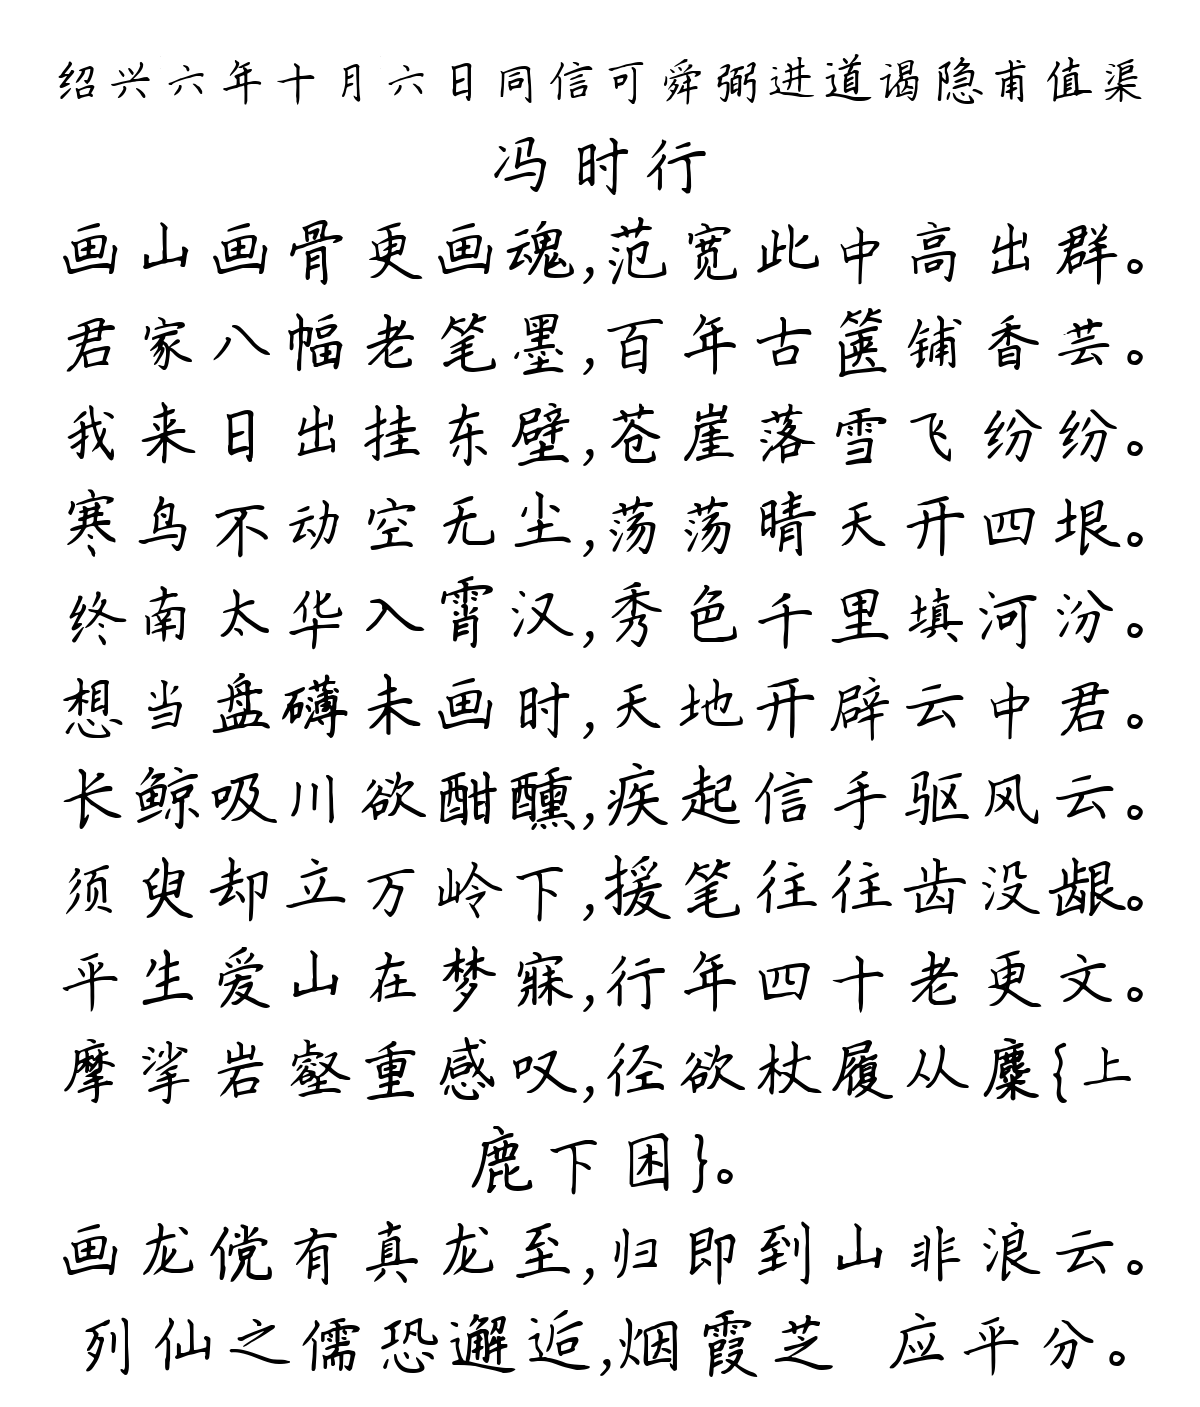 绍兴六年十月六日同信可舜弼进道谒隐甫值渠
冯时行
画山画骨更画魂,范宽此中高出群。
君家八幅老笔墨,百年古箧铺香芸。
我来日出挂东壁,苍崖落雪飞纷纷。
寒鸟不动空无尘,荡荡晴天开四垠。
终南太华入霄汉,秀色千里填河汾。
想当盘礴未画时,天地开辟云中君。
长鲸吸川欲酣醺,疾起信手驱风云。
须臾却立万岭下,援笔往往齿没龈。
平生爱山在梦寐,行年四十老更文。
摩挲岩壑重感叹,径欲杖履从麋{上
鹿下困}。
画龙傥有真龙至,归即到山非浪云。
列仙之儒恐邂逅,烟霞芝 应平分。